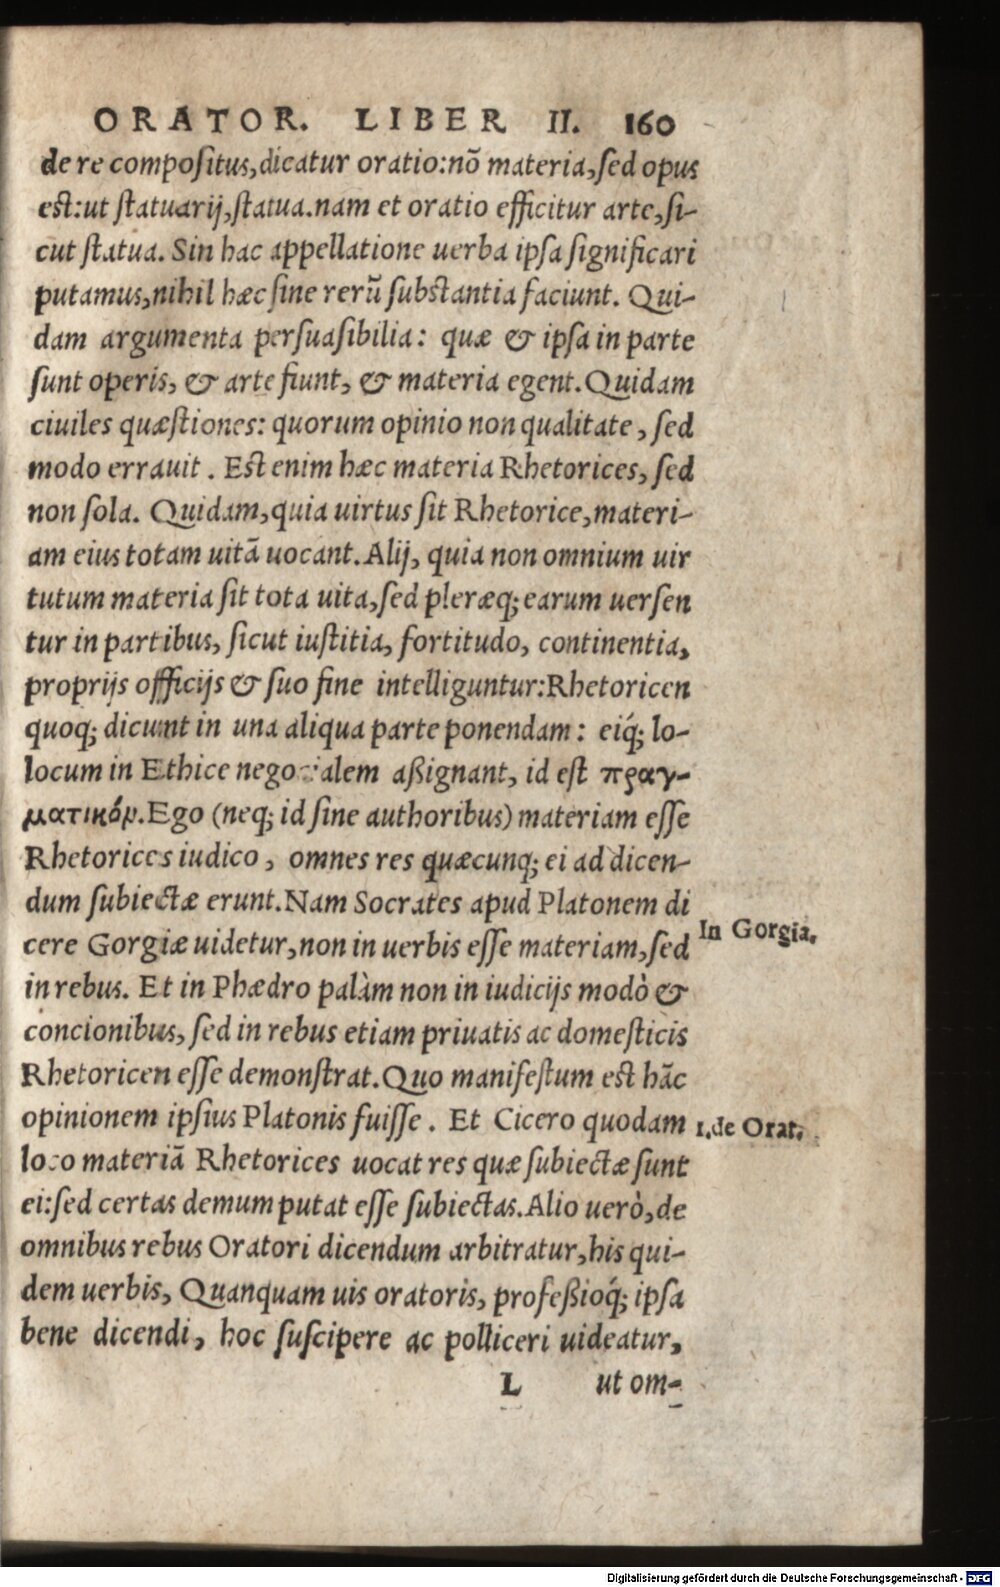 ORATOR. LIBER II. 160
de re compositus, dicatur oratio: nõ materia, sed opus
est: ut statuarij, statua. nam et oratio efficitur arte, si-
cut statua. Sin hac appellatione uerba ipsa significari
putamus, nihil hæc sine rerũ substantia faciunt. Qui-
dam argumenta persuasibilia: quæ & ipsa in parte
sunt operis, & arte fiunt, & materia egent. Quidam
ciuiles quæstiones: quorum opinio non qualitate, sed
modo errauit. Est enim hæc materia Rhetorices, sed
non sola. Quidam, quia uirtus sit Rhetorice, materi-
am eius totam uitã uocant. Alij, quia non omnium uir
tutum materia sit tota uita, sed pleræq; earum uersen
tur in partibus, sicut iustitia, fortitudo, continentia,
proprijs officijs & suo fine intelliguntur: Rhetoricen
quoq; dicunt in una aliqua parte ponendam: eiq́; lo-
locum in Ethice negocialem aßignant, id est πραγ-
ματικόν. Ego (neq; id sine authoribus) materiam esse
Rhetorices iudico, omnes res quæcunq; ei ad dicen-
dum subiectæ erunt. Nam Socrates apud Platonem di
cere Gorgiæ uidetur, non in uerbis esse materiam, sed
In Gorgia.
in rebus. Et in Phædro palàm non in iudicijs modò &
concionibus, sed in rebus etiam priuatis ac domesticis
Rhetoricen esse demonstrat. Quo manifestum est hãc
opinionem ipsius Platonis fuisse. Et Cicero quodam
1. de Orat.
loco materiã Rhetorices uocat res quæ subiectæ sunt
ei: sed certas demum putat esse subiectas. Alio uerò, de
omnibus rebus Oratori dicendum arbitratur, his qui-
dem uerbis, Quanquam uis oratoris, profeßioq́; ipsa
bene dicendi, hoc suscipere ac polliceri uideatur,
L ut om-
Digitalisierung gefördert durch die Deutsche Forschungsgemeinschaft - DFG